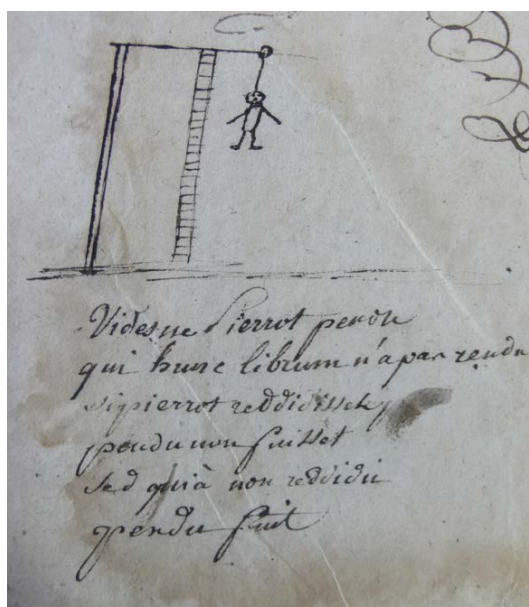 Videsne Pierrot pendu
qui hunc librum n'a pas rendu
si pierrot reddidisset
pendu non fuisset
sed quià non reddidit
pendu fuit